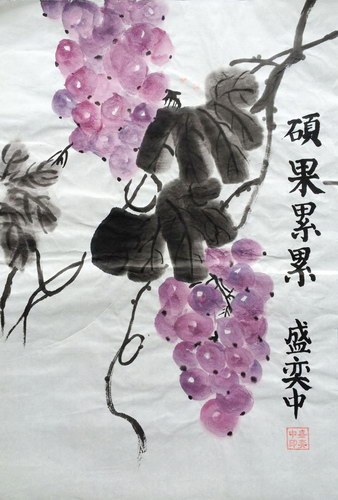 碩果累累
盛奕中